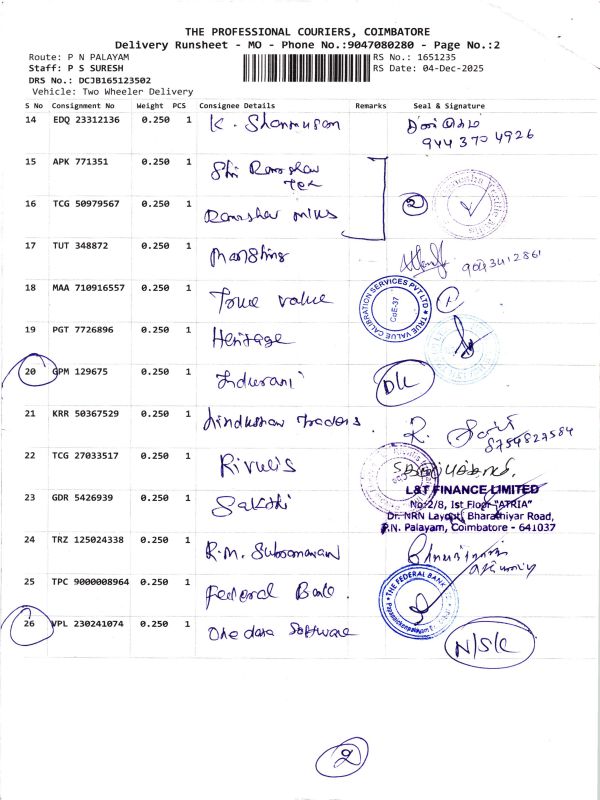 THE PROFESSIONAL COURIERS, COIMBATORE
Delivery Runsheet - MO - Phone No.:9047080280 - Page No.:2
Route: P N PALAYAM
RS No.: 1651235
Staff: P S SURESH
RS Date: 04-Dec-2025
DRS No.: DCJB165123502
Vehicle: Two Wheeler Delivery
S No Consignment No Weight PCS Consignee Details Remarks Seal & Signature
14 EDQ 23312136 0.250 1 K. Shanmugam
944 370 4926
15 APK 771351 0.250 1 Shri Ramshav
Tex
16 TCG 50979567 0.250 1 Ramshav mills 2
17 TUT 348872 0.250 1 9043412861
18 MAA 710916557 0.250 1 True value
TRUE VALUE CALIBRATION SERVICES PVT LTD
CbE-37
19 PGT 7726896 0.250 1 Heritage
20 GPM 129675 0.250 1 Indurani D/L
21 KRR 50367529 0.250 1 traders. R.
8754827584
22 TCG 27033517 0.250 1 Rivulis
23 GDR 5426939 0.250 1 Sakthi
L&T FINANCE LIMITED
No:2/8, Ist Floor "ATRIA"
Dr. NRN Layout, Bharathiyar Road,
P.N. Palayam, Coimbatore - 641037
24 TRZ 125024338 0.250 1 R.M. Subramanian
25 TPC 9000008964 0.250 1 Federal Bank.
THE FEDERAL BANK
26 VPL 230241074 0.250 1 One data Software N/S/K
2